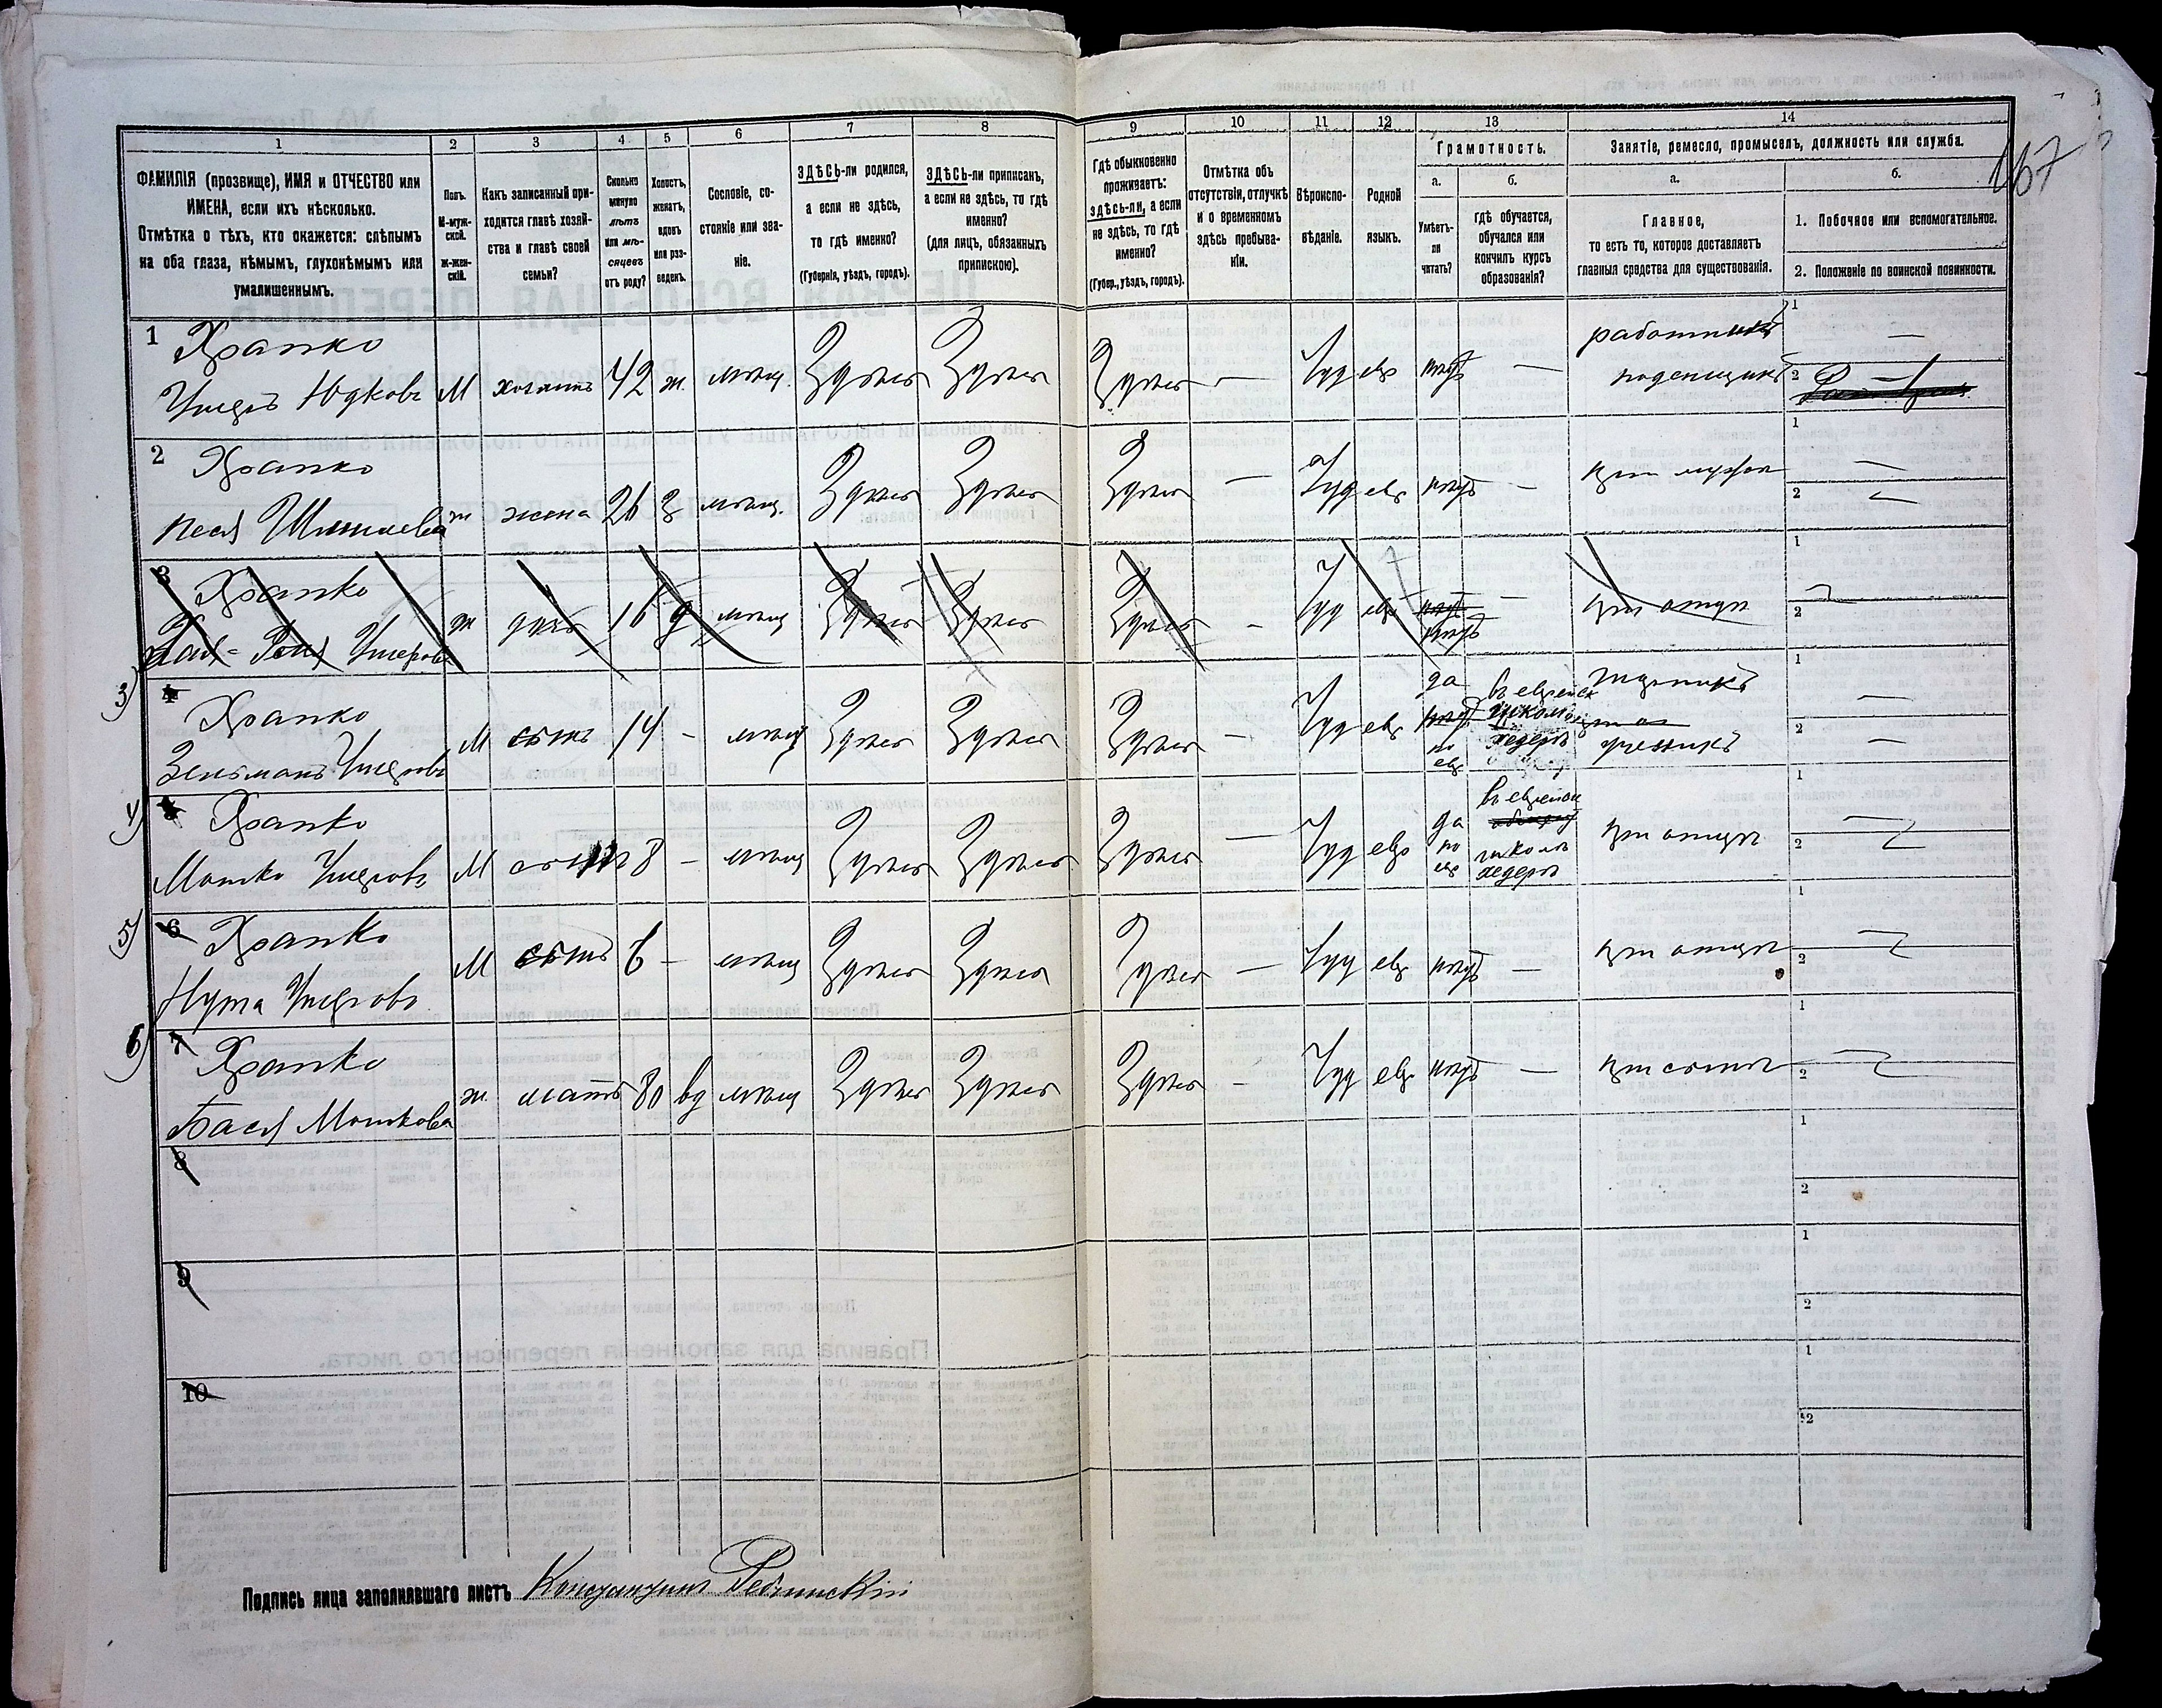 167
1
2
3
4
5
6
7
8
9
10
11
12
13
14
ФАМИЛІЯ (прозвище), ИМЯ и ОТЧЕСТВО или
ИМЕНА, если ихъ нѣсколько.
Отмѣтка о тѣхъ, кто окажется: слѣпымъ
на оба глаза, нѣмымъ, глухонѣмымъ или
умалишеннымъ.
Полъ.
М-муж-
ской.
ж-жен-
скій.
Какъ записанный при-
ходится главѣ хозяй-
ства и главѣ своей
семьи?
Сколько
минуло
лѣтъ
или мѣ-
сяцевъ
отъ роду?
Холостъ,
женатъ,
вдовъ
или раз-
веденъ.
Сословіе, со-
стояніе или зва-
ніе.
ЗДѢСЬ-ли родился,
а если не здѣсь,
то гдѣ именно?
(Губернія, уѣздъ, городъ).
ЗДѢСЬ-ли приписанъ,
а если не здѣсь, то гдѣ
именно?
(для лицъ, обязанныхъ
припискою).
Гдѣ обыкновенно
проживаетъ:
здѣсь-ли, а если
не здѣсь, то гдѣ
именно?
(Губер., уѣздъ, городъ).
Отмѣтка объ
отсутствіи, отлучкѣ
и о временномъ
здѣсь пребыва-
ніи.
Вѣроиспо-
вѣданіе.
Родной
языкъ.
Грамотность.
а.
Умѣетъ-
ли
читать?
б.
гдѣ обучается,
обучался или
кончилъ курсъ
образованія?
Занятіе, ремесло, промыселъ, должность или служба.
а.
Главное,
то есть то, которое доставляетъ
главныя средства для существованія.
б.
1. Побочное или вспомогательное.
2. Положеніе по воинской повинности.
1 Храпко
Ушеръ Юдковъ М хозяинъ 42 ж. мѣщ. Здѣсь Здѣсь Здѣсь — Іуд евр нѣтъ — работникъ
поденщикъ
2 Храпко
Песя Шмилева ж жена 26 з мѣщ. Здѣсь Здѣсь Здѣсь — Іуд евр нѣтъ — при мужѣ
3 Храпко
Ушерова ж дочь 16 д мѣщ Здѣсь Здѣсь Здѣсь — Іуд евр нѣтъ нѣтъ — при отцѣ
3) 4 Храпко
Зельманъ Ушеровъ М сынъ 14 — мѣщ Здѣсь Здѣсь Здѣсь — Іуд евр да нѣтъ по евр въ еврейск школѣ хедеръ
ученикъ
4) 5 Храпко
Мошко Ушеровъ М сынъ 8 — мѣщ Здѣсь Здѣсь Здѣсь — Іуд евр да по евр въ еврейск школѣ хедеръ при отцѣ
5) 6 Храпко
Нута Ушеровъ М сынъ 6 — мѣщ Здѣсь Здѣсь Здѣсь — Іуд евр нѣтъ — при отцѣ
6) 7 Храпко
Бася Мошкова ж. мать 80 вд мѣщ Здѣсь Здѣсь Здѣсь — Іуд евр нѣтъ — при сынѣ
8
9
10
Подпись лица заполнявшаго листъ Константинъ